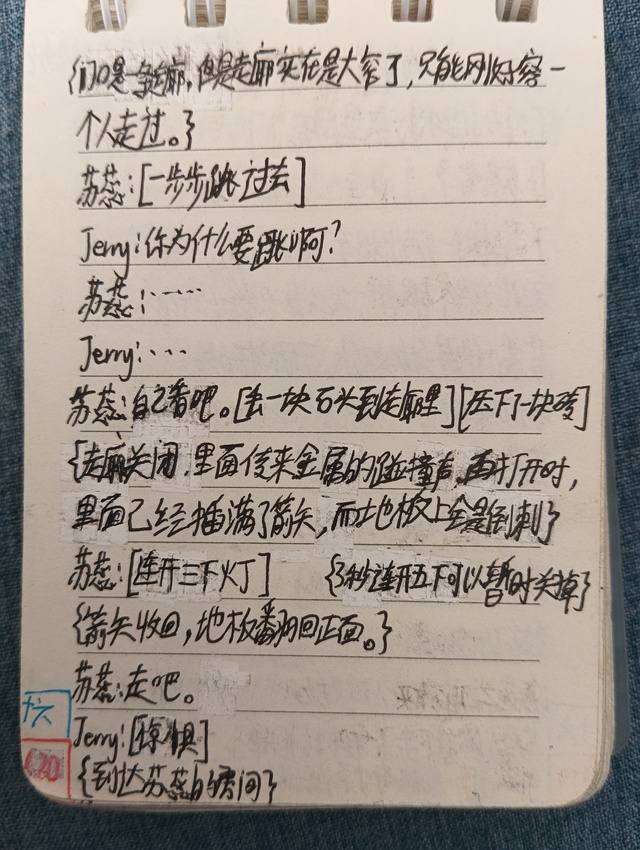 {门口是一条走廊，但是走廊实在是太窄了，只能刚好容一
个人走过。}
苏蕊：[一步步跳过去]
Jerry：你为什么要跳啊？
苏蕊：……
Jerry：…
苏蕊：自己看吧。[丢一块石头到走廊里][压下一块砖]
{走廊关闭，里面传来金属的碰撞声，再打开时，
里面已经插满了箭矢，而地板上全是倒刺}
苏蕊：[连开三下灯] {3秒连开五下可以暂时关掉}
{箭矢收回，地板翻回正面。}
苏蕊：走吧。
Jerry：[惊惧]
{到达苏蕊的房间}
十六
20